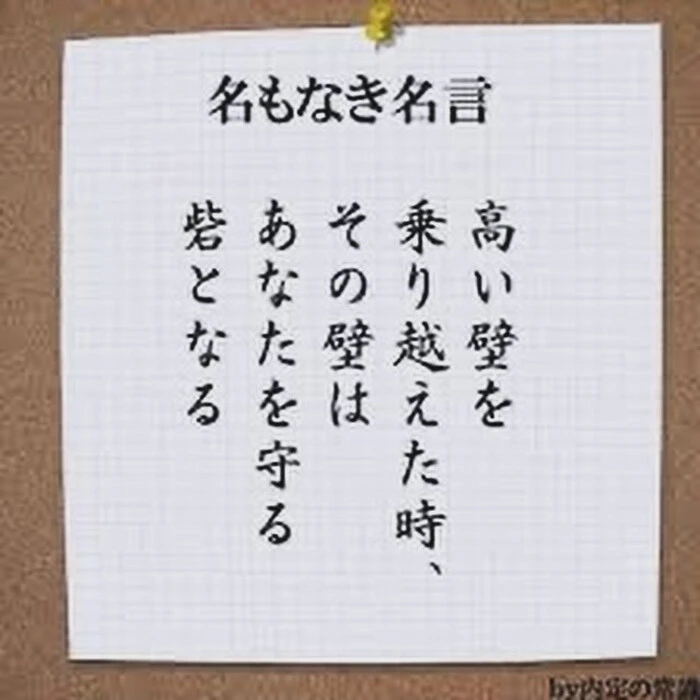 名もなき名言
高い壁を
乗り越えた時、
その壁は
あなたを守る
砦となる
by内定の常識